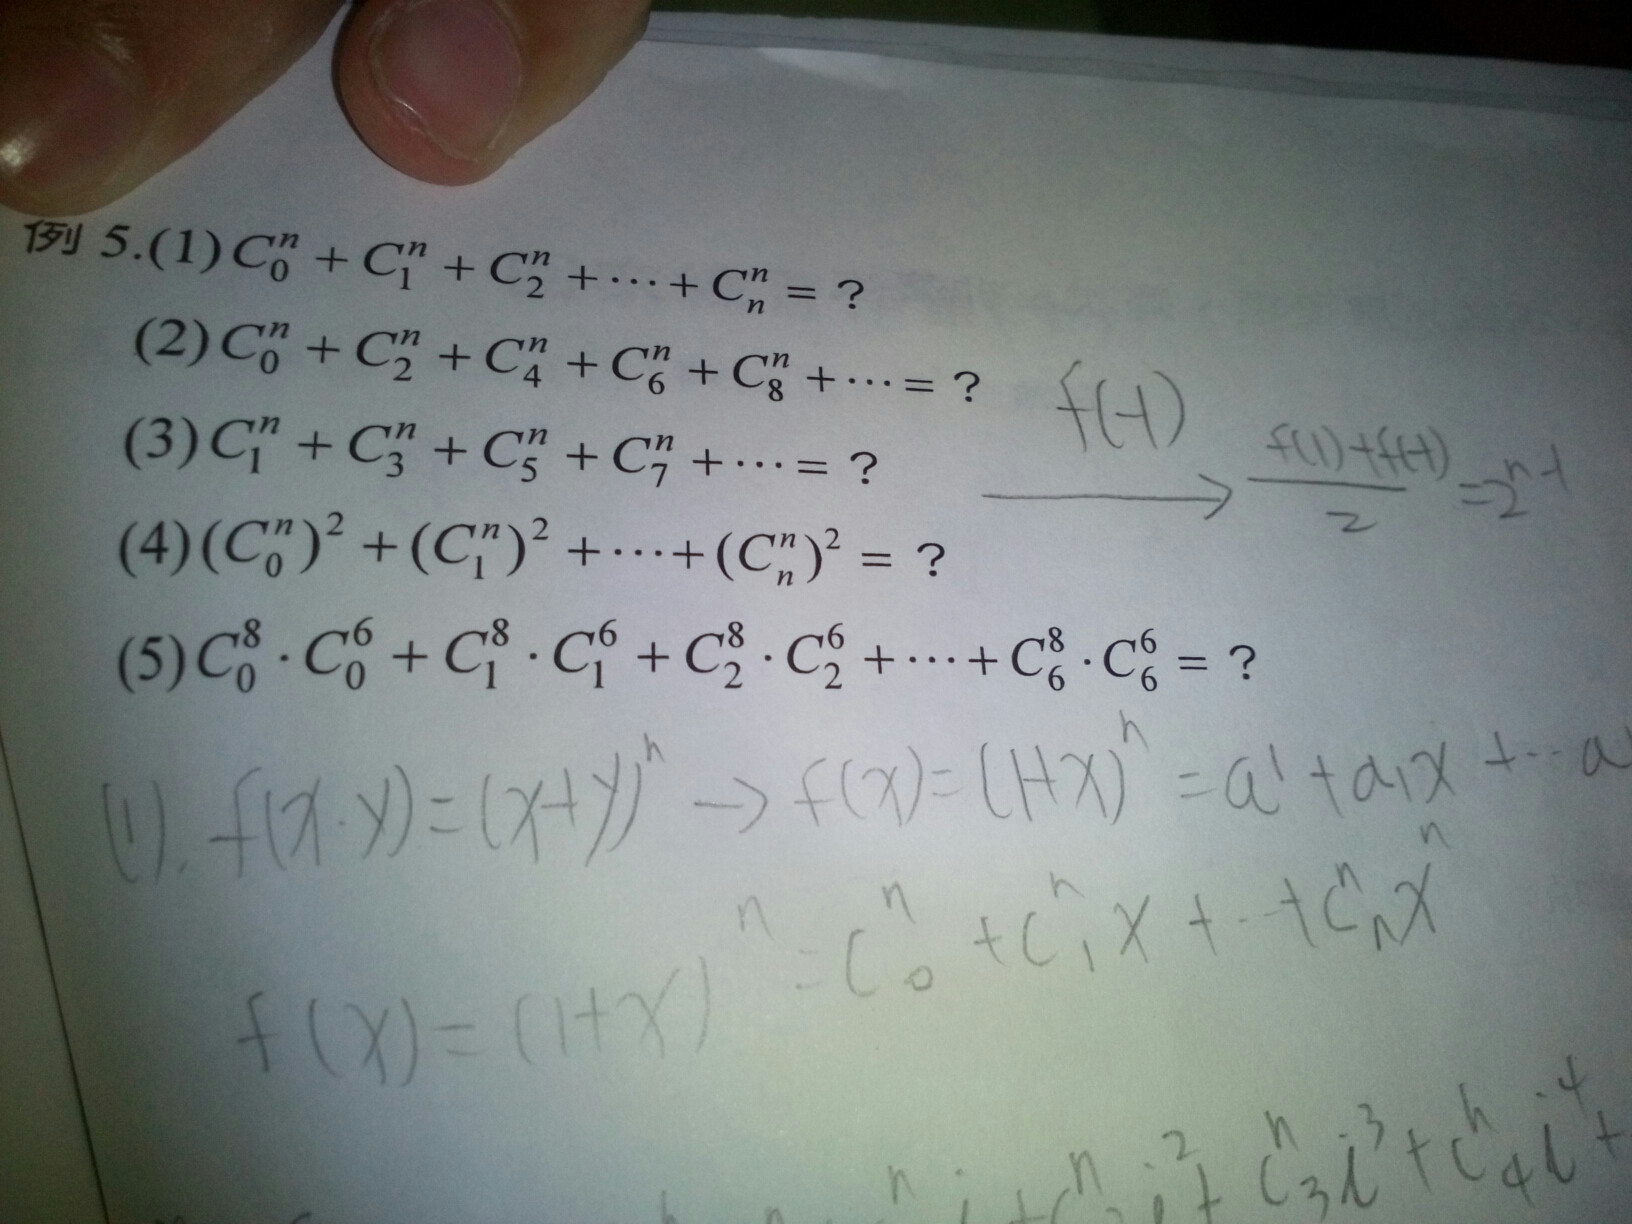 例 5.(1) C₀ⁿ + C₁ⁿ + C₂ⁿ + ⋯ + Cₙⁿ = ?
(2) C₀ⁿ + C₂ⁿ + C₄ⁿ + C₆ⁿ + C₈ⁿ + ⋯ = ?
(3) C₁ⁿ + C₃ⁿ + C₅ⁿ + C₇ⁿ + ⋯ = ?
f(-1)
→ (f(1)+f(-1))/2 = 2ⁿ⁻¹
(4) (C₀ⁿ)² + (C₁ⁿ)² + ⋯ + (Cₙⁿ)² = ?
(5) C₀⁸ · C₀⁶ + C₁⁸ · C₁⁶ + C₂⁸ · C₂⁶ + ⋯ + C₆⁸ · C₆⁶ = ?
(1). f(x·y) = (x+y)ⁿ → f(x) = (1+x)ⁿ = a' + a₁x + ⋯ a
f(x) = (1+x)ⁿ = C₀ⁿ + C₁ⁿx + ⋯ + Cₙⁿxⁿ
C₃ⁿi³ + C₄ⁿi⁴ +